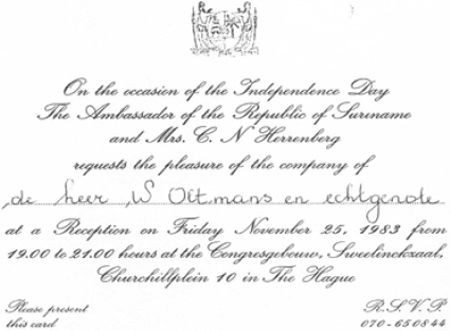 On the occasion of the Independence Day
The Ambassador of the Republic of Suriname
and Mrs. C. N Herrenberg
requests the pleasure of the company of
de heer W Oltmans en echtgenote
at a Reception on Friday November 25, 1983 from
19.00 to 21.00 hours at the Congresgebouw, Sweelinckzaal,
Churchillplein 10 in The Hague
Please present
this card
R.S.V.P.
070-650844